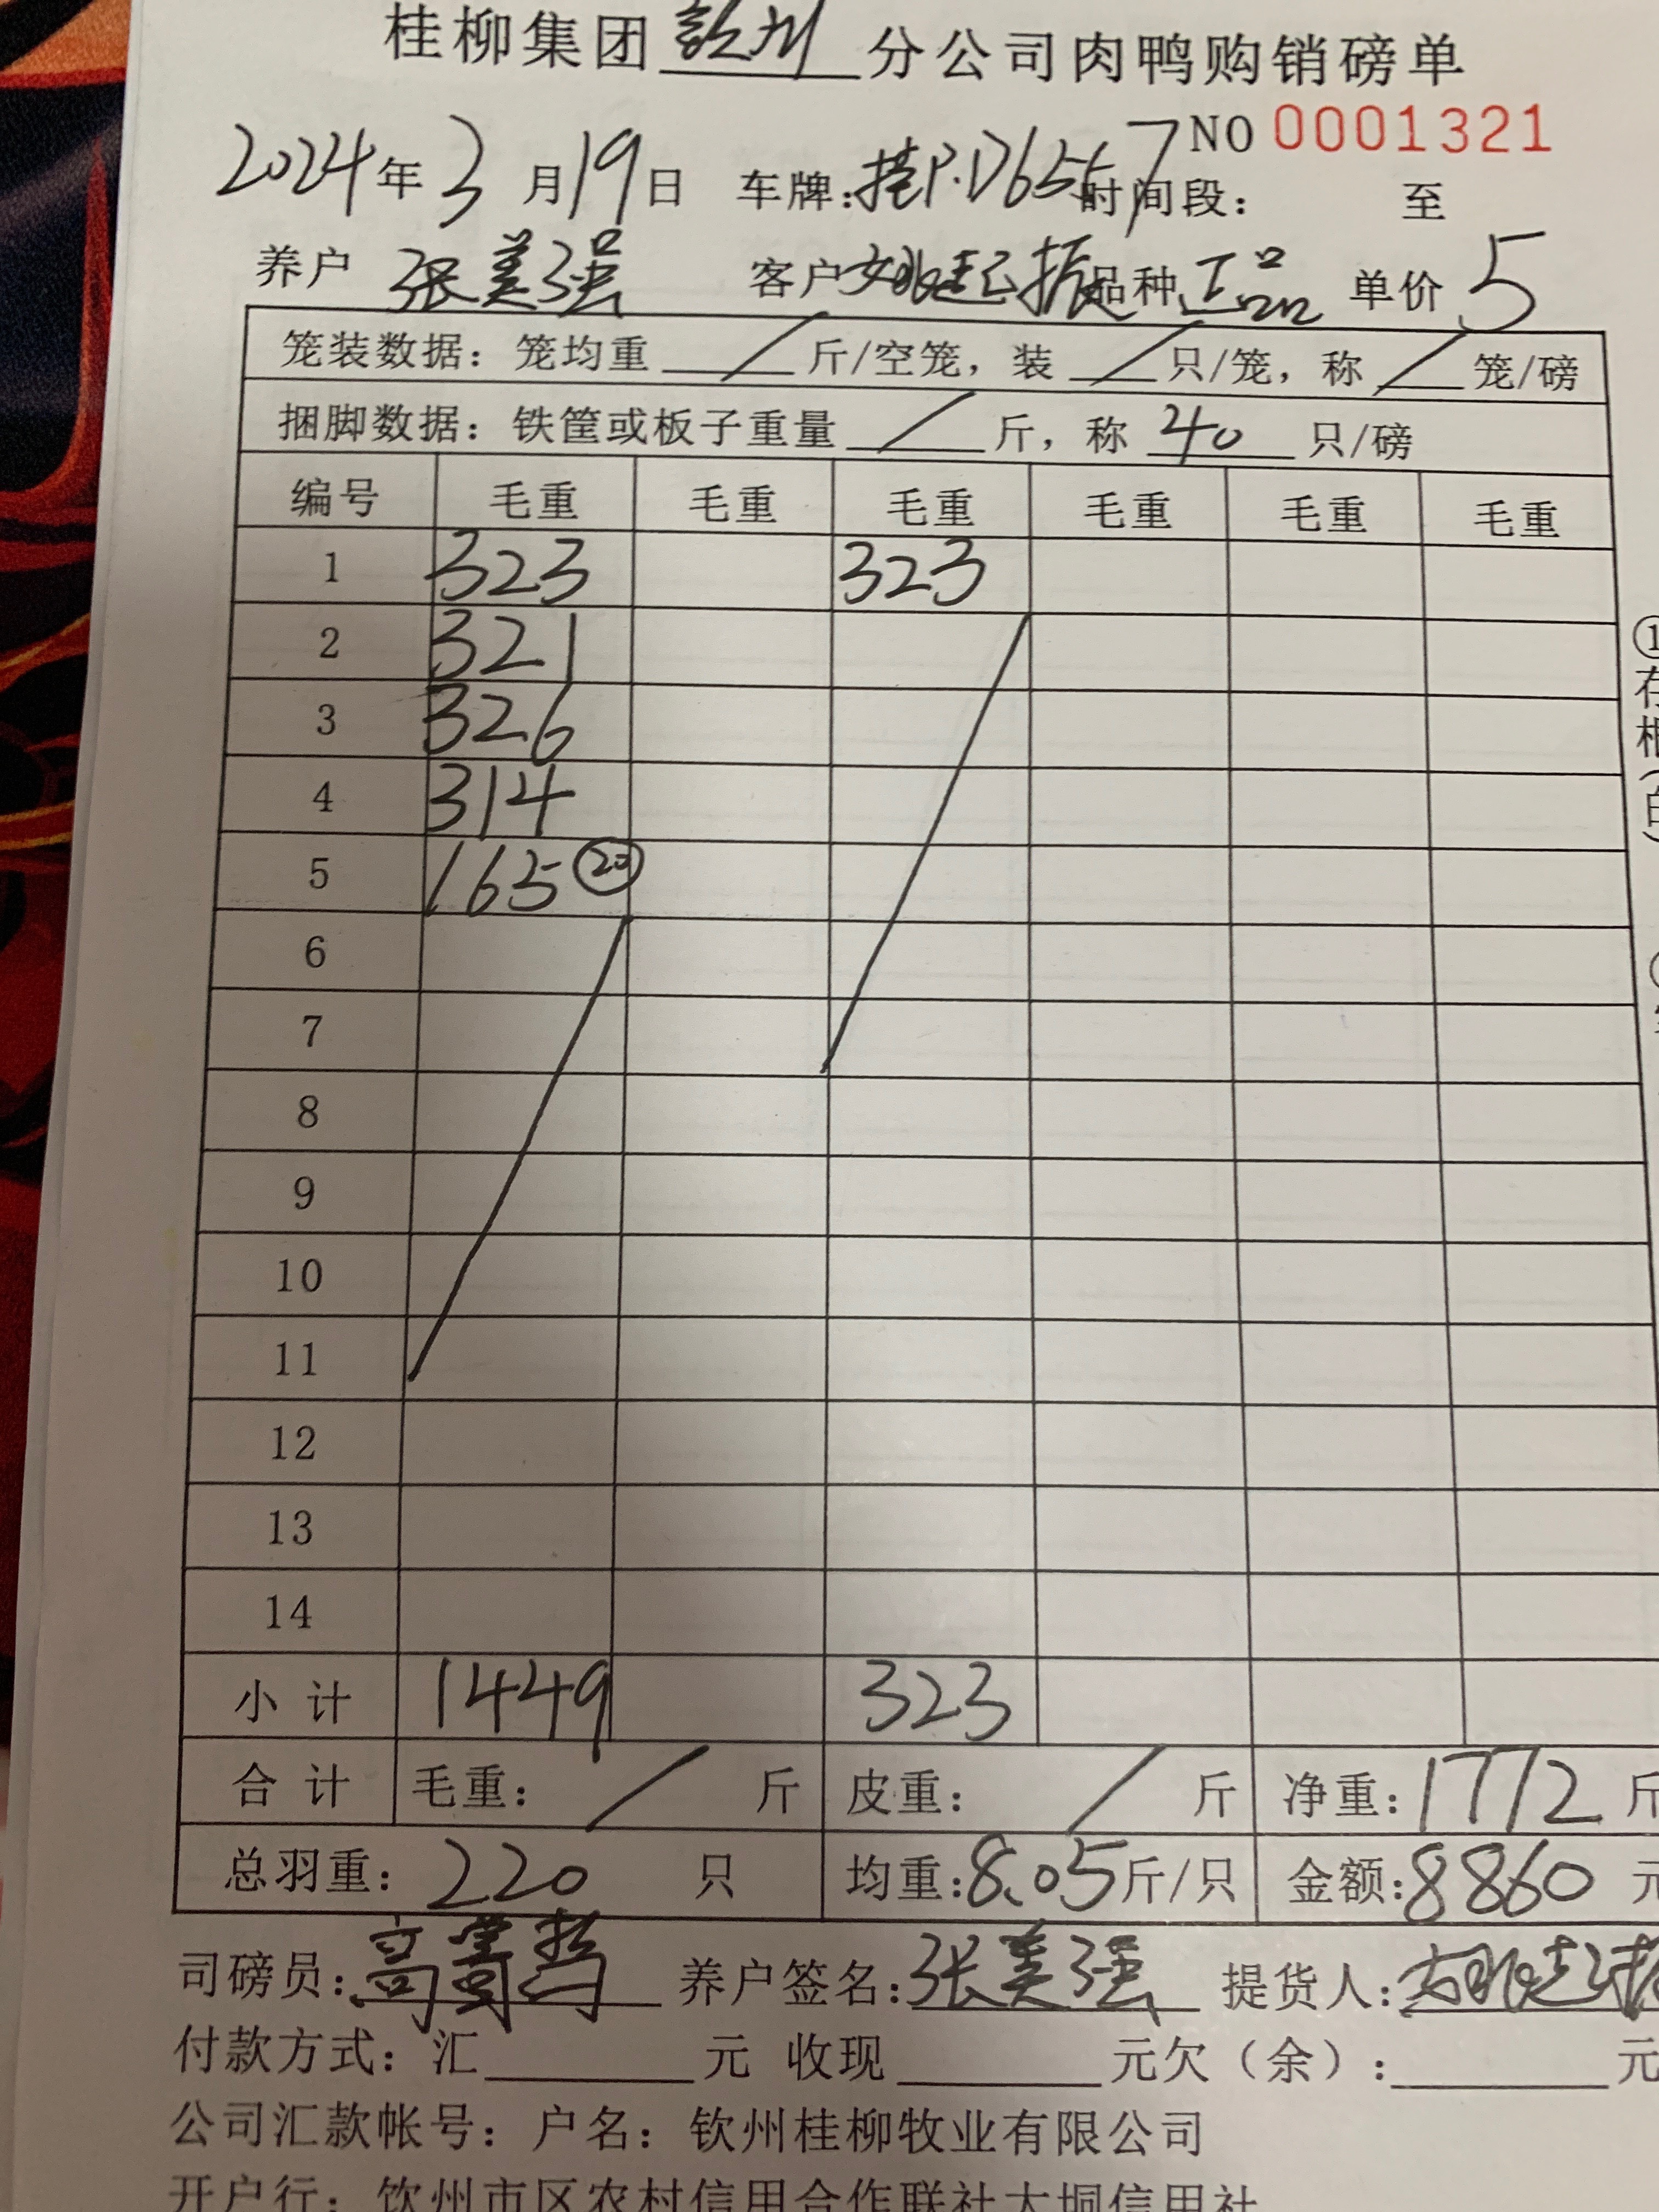 桂柳集团钦州分公司肉鸭购销磅单
NO 0001321
2024年3月19日 车牌:桂P.D6557 时间段: 至
养户 张美强 客户 姚起振 品种 正品 单价 5
笼装数据: 笼均重 / 斤/空笼, 装 / 只/笼, 称 / 笼/磅
捆脚数据: 铁筐或板子重量 / 斤, 称 40 只/磅
编号 毛重 毛重 毛重 毛重 毛重 毛重
1 323 323
2 321
3 326
4 314
5 165 ⑳
6
7
8
9
10
11
12
13
14
小计 1449 323
合计 毛重: / 斤 皮重: / 斤 净重:1772 斤
总羽重: 220 只 均重:8.05斤/只 金额:8860 元
司磅员: 养户签名:张美强 提货人:姚起振
付款方式: 汇 元 收现 元欠(余): 元
公司汇款帐号: 户名: 钦州桂柳牧业有限公司
开户行: 钦州市区农村信用合作联社大垌信用社
①
存
根
(
白
)